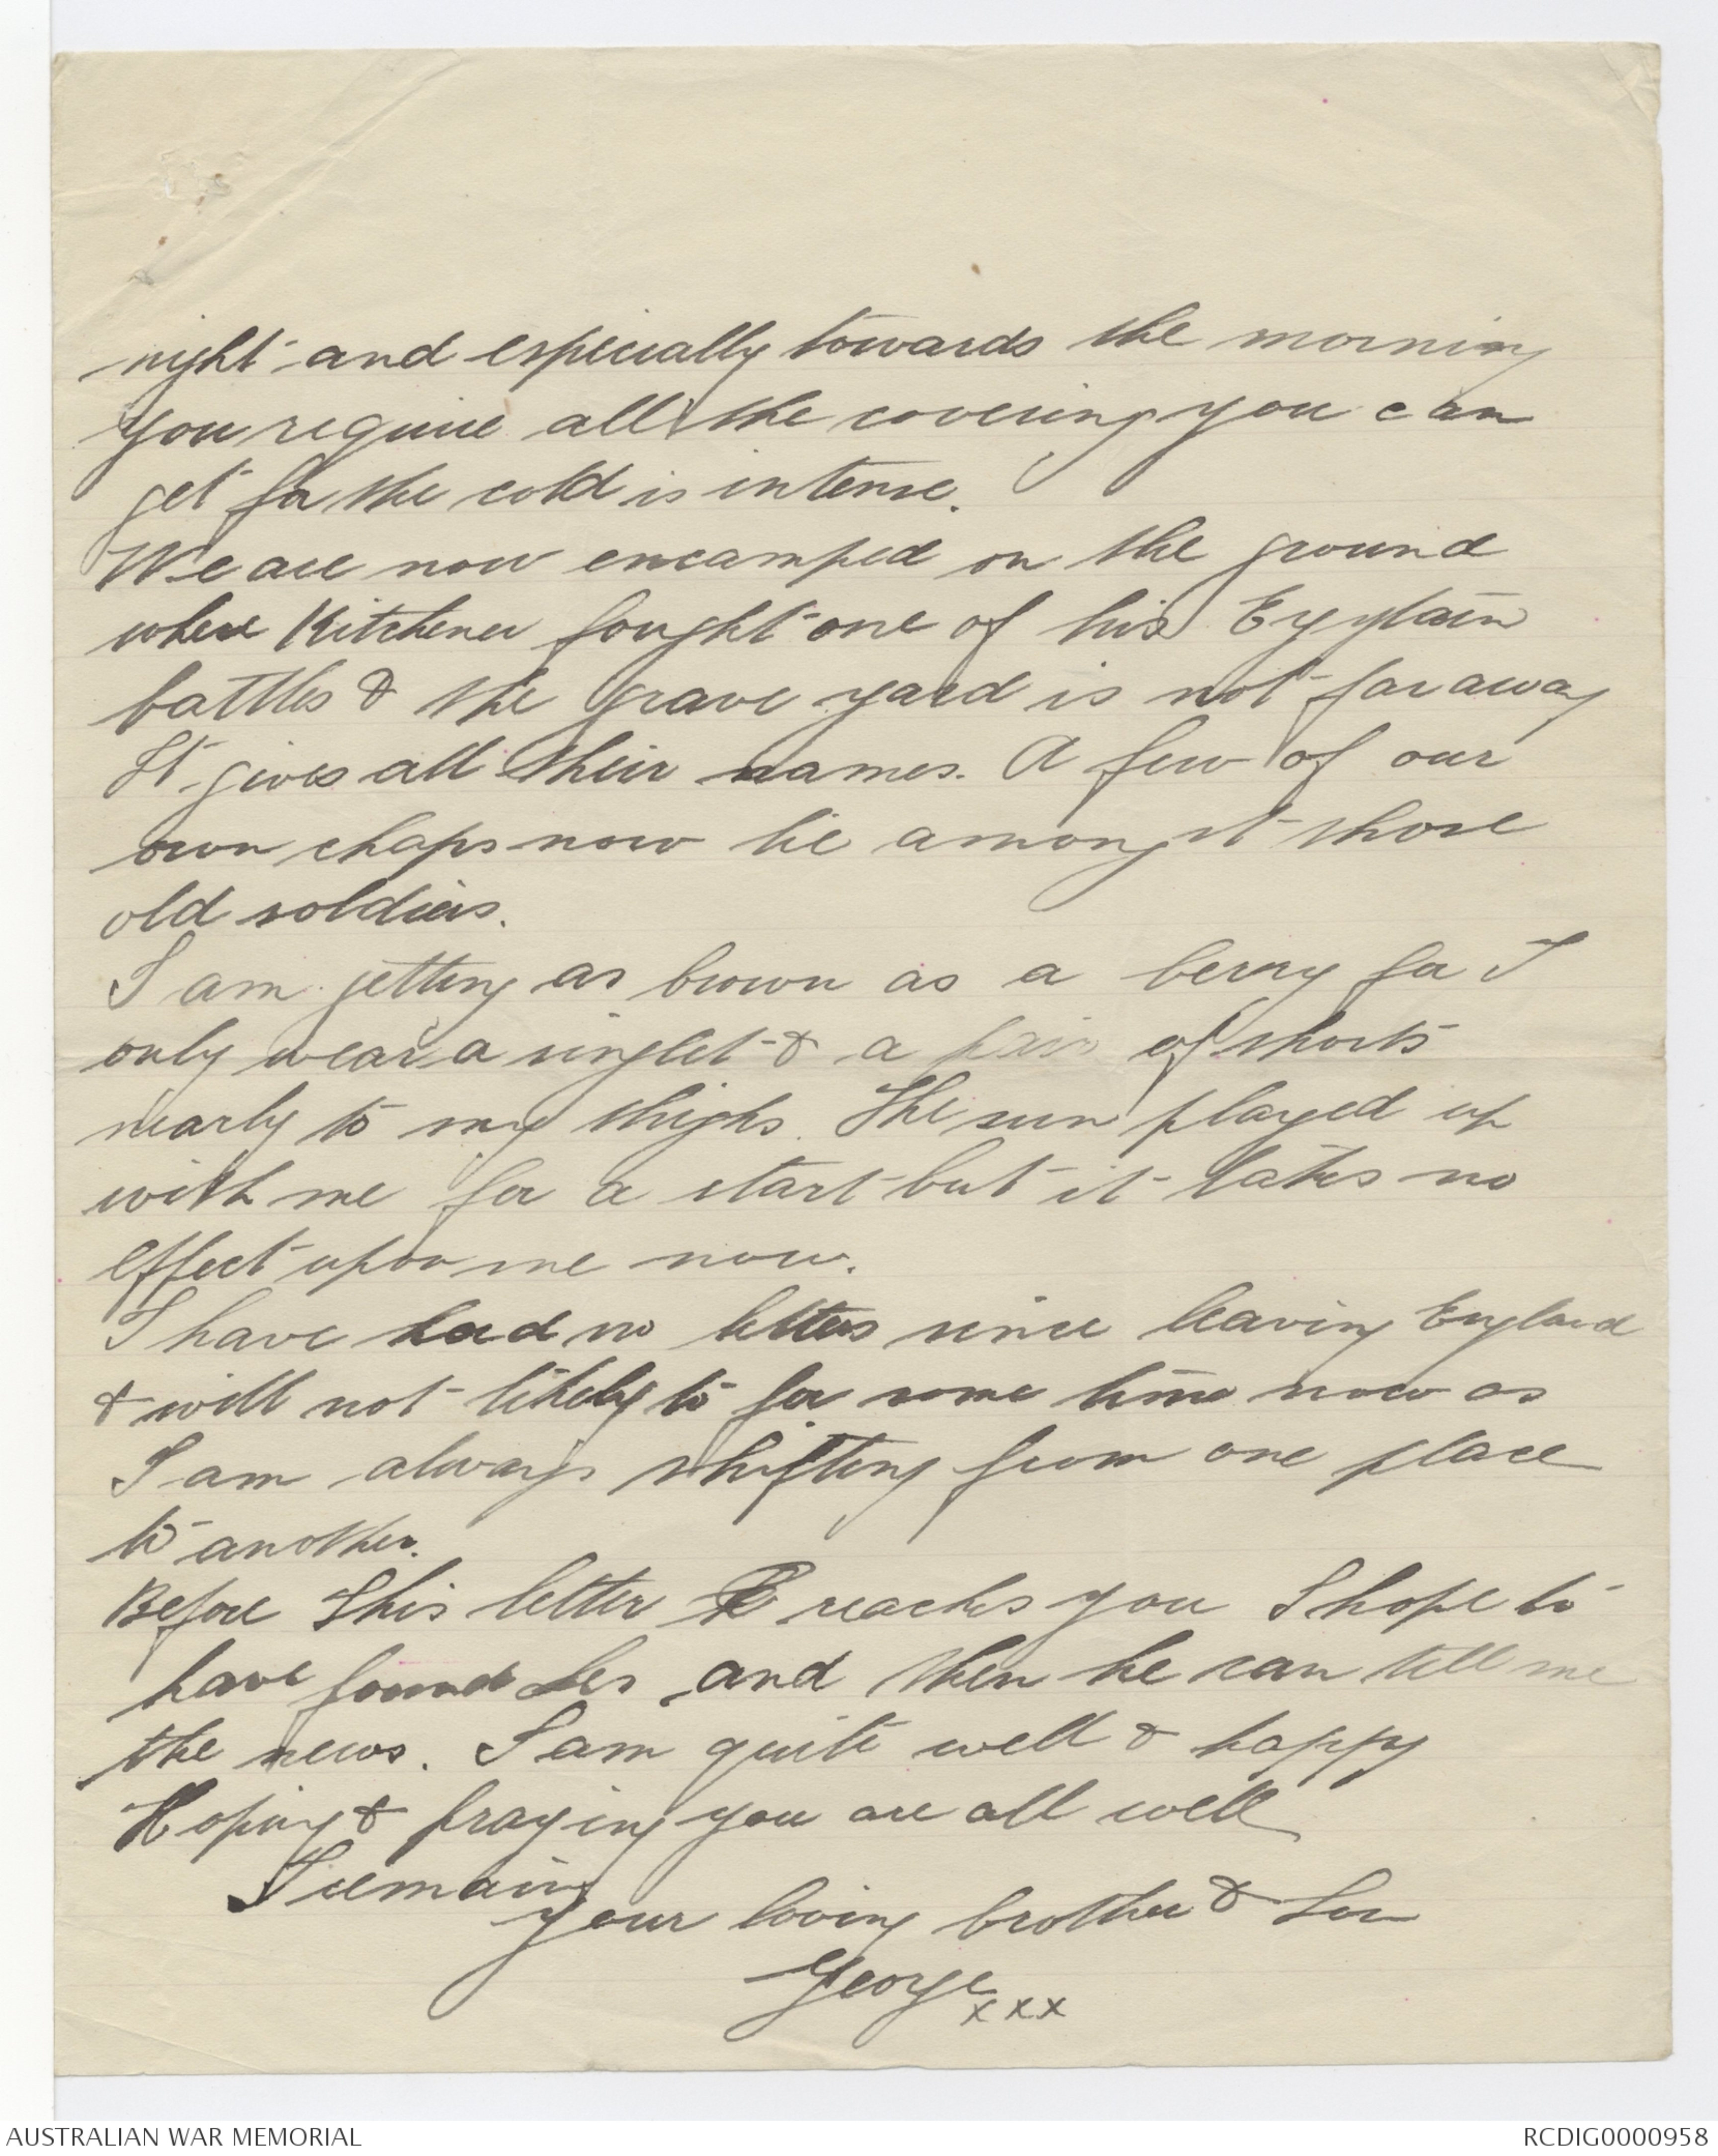 night and especially towards the morning
you require all the covering you can
get for the cold is intense.
We are now encamped on the ground
where Kitchener fought one of his Egyptain
battles & the grave yard is not far away
It gives all their names. A few of our
own chaps now lie amongst those
old soldiers.
I am getting as brown as a berry for I
only wear a singlet & a pair of shorts
nearly to my thighs. The sun played up
with me for a start but it takes no
effect upon me now.
I have had no letters since leaving England
& will not likely to for some time now as
I am always shifting from one place
to another.
Before This letter reaches you I hope to
have found Les and then he can tell me
the news. I am quite well & happy
Hoping & praying you are all well
I remain
your loving brother & Son
George
xxx
AUSTRALIAN WAR MEMORIAL
RCDIG0000958